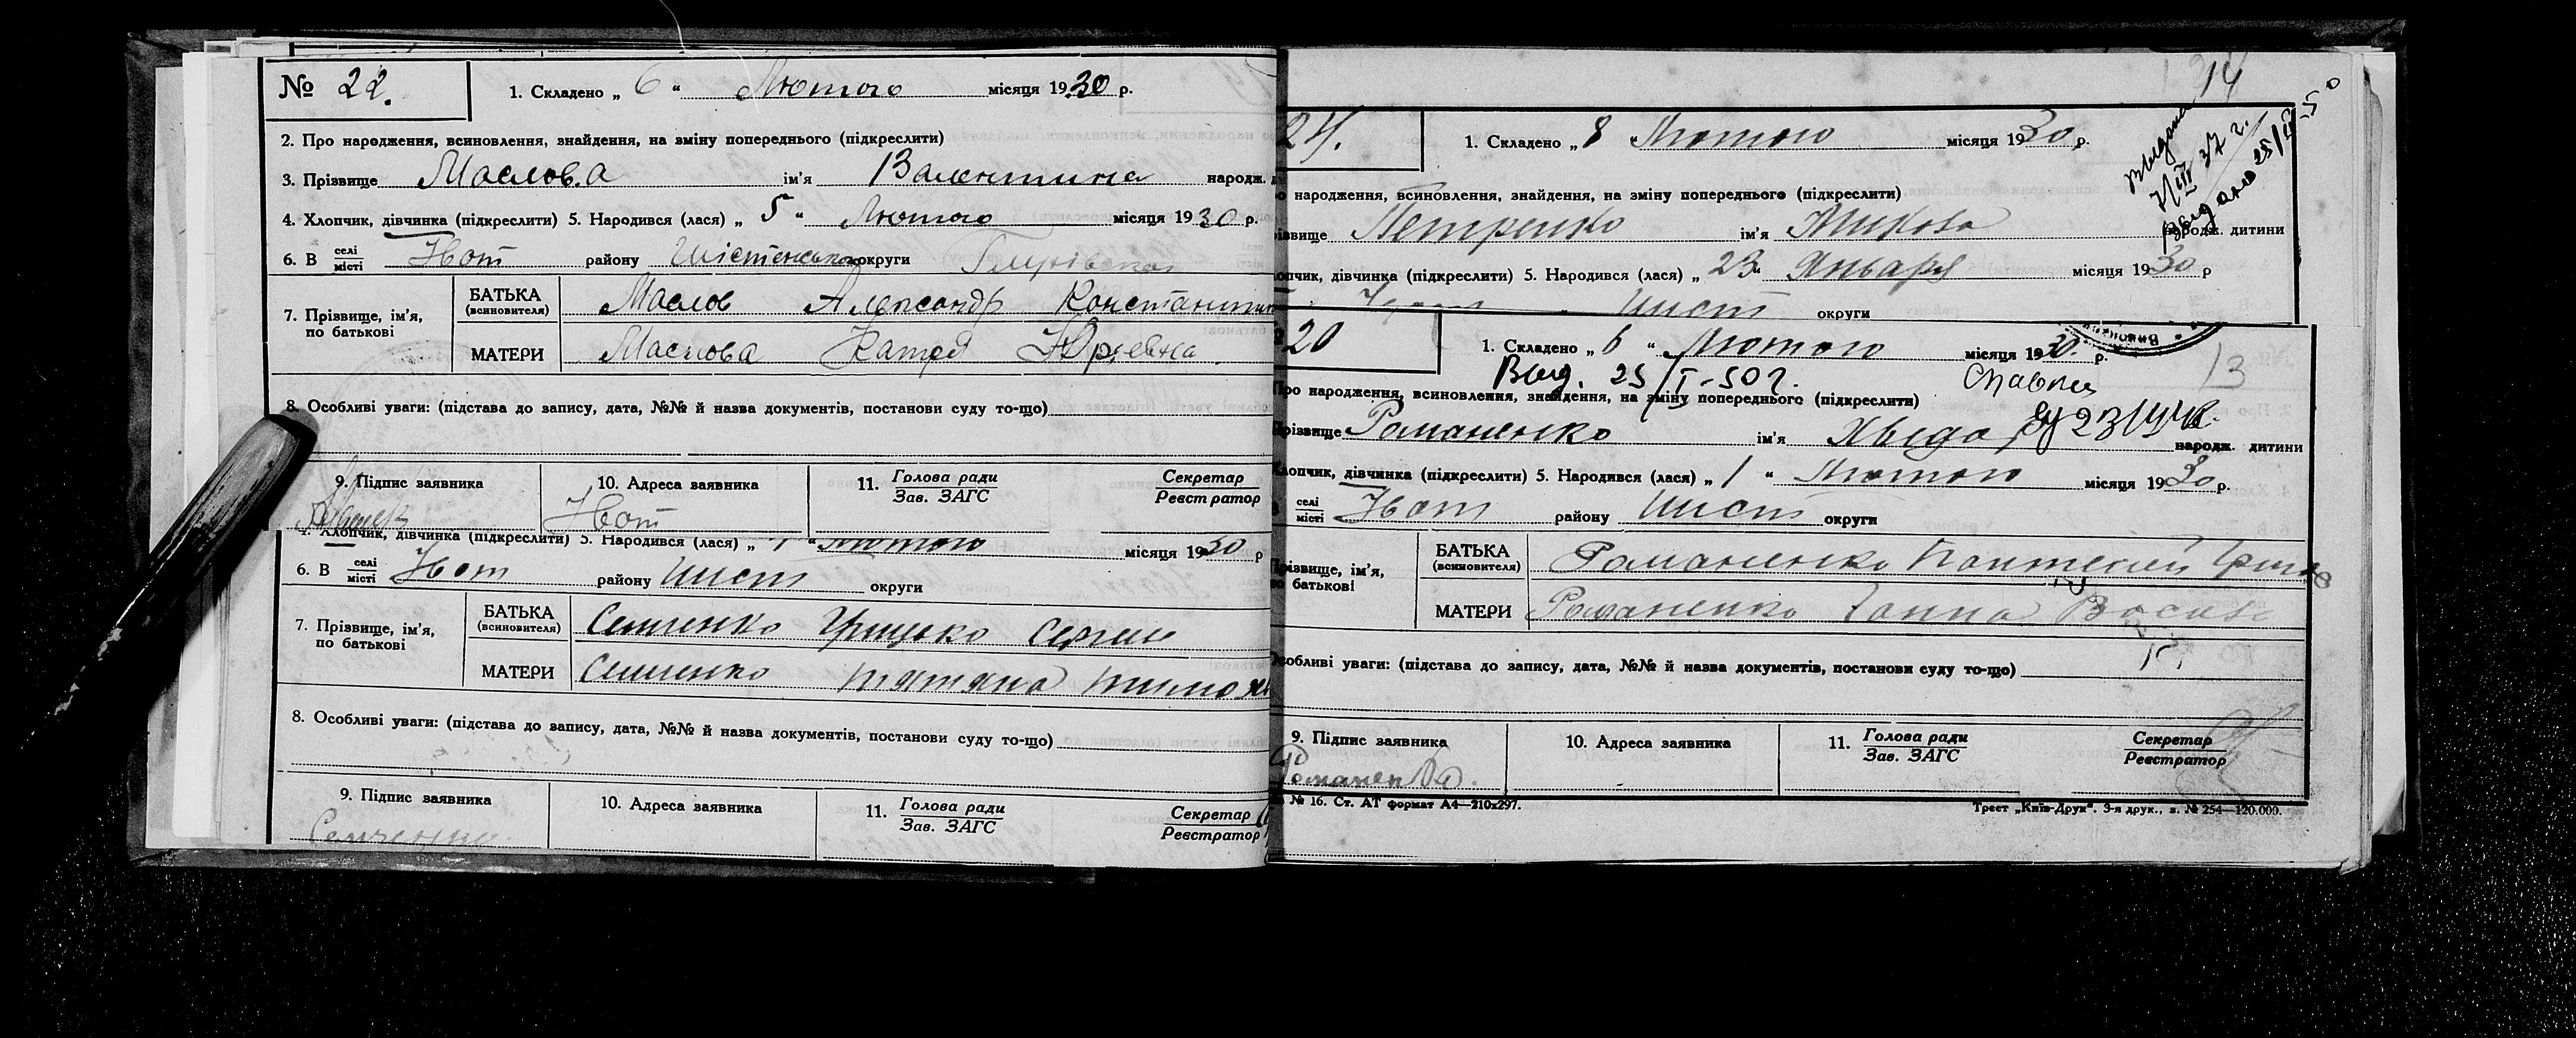 № 22.
1. Складено „ 6 “ Лютого місяця 1930 р.
2. Про народження, всиновлення, знайдення, на зміну попереднього (підкреслити)
3. Прізвище Маслова ім'я Валентина народж.
4. Хлопчик, дівчинка (підкреслити) 5. Народився (лася) „ 5 “ Лютого місяця 1930 р.
6. В селі місті Хот району Шістенського округи
7. Прізвище, ім'я, по батькові
БАТЬКА (всиновителя) Маслов Александр Константин
МАТЕРИ Маслова Катря Юрьевна
8. Особливі уваги: (підстава до запису, дата, №№ й назва документів, постанови суду то-що)
9. Підпис заявника
10. Адреса заявника Хот
11. Голова ради Зав. ЗАГС
Секретар Реєстратор
4. Хлопчик, дівчинка (підкреслити) 5. Народився (лася) „ “ Лютого місяця 1930 р
6. В селі місті Хот району Шист округи
7. Прізвище, ім'я, по батькові
БАТЬКА (всиновителя) Семченко Грицько Сергие
МАТЕРИ Семченко Тятяна
8. Особливі уваги: (підстава до запису, дата, №№ й назва документів, постанови суду то-що)
9. Підпис заявника Семченко
10. Адреса заявника
11. Голова ради Зав. ЗАГС
Секретар Реєстратор
14
24.
1. Складено „ 8 “ Лютого місяця 1930 р.
Выдана 7/III 37 г.
Выдано
народження, всиновлення, знайдення, на зміну попереднього (підкреслити)
Петренко ім'я Микола народж. дитини
дівчинка (підкреслити) 5. Народився (лася) „ 23 “ Января місяця 1930 р
Шист округи
20
1. Складено „ 6 “ Лютого місяця 1930 р.
13
Выд. 25/I-50 г.
Про народження, всиновлення, знайдення, на зміну попереднього (підкреслити)
Прізвище Романенко ім'я народж. дитини
Хлопчик, дівчинка (підкреслити) 5. Народився (лася) „ 1 “ Лютого місяця 1930 р.
селі місті Хот району Шист округи
Прізвище, ім'я, по батькові
БАТЬКА (всиновителя) Романенко Пантелей
МАТЕРИ Романенко Ганна
Особливі уваги: (підстава до запису, дата, №№ й назва документів, постанови суду то-що)
9. Підпис заявника Романенко.
10. Адреса заявника
11. Голова ради Зав. ЗАГС
Секретар Реєстратор
№ 16. Ст. АТ формат А4—210х297.
Трест „Київ-Друк“. 3-я друк., з. № 254—120.000.